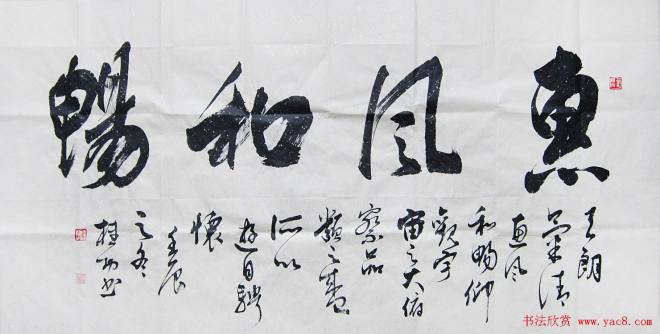 惠风和暢
天朗
氣清
惠风
和暢仰
觀宇
宙之大俯
察品
類之盛
所以
遊目騁
懷
壬辰
之冬
桂 书
书法欣赏
www.yac8.com